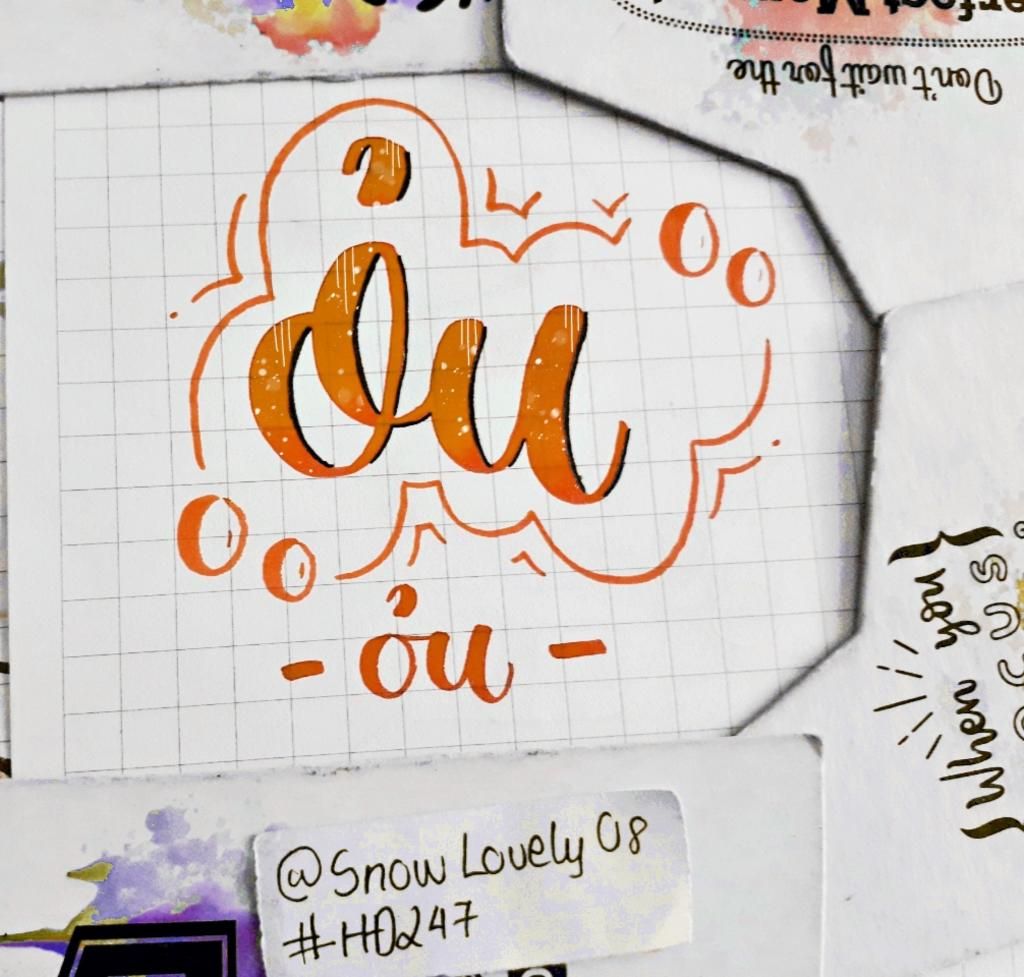 Don't wait for the
Ỏu
- ỏu -
When you
@Snow Lovely 08
#HD247